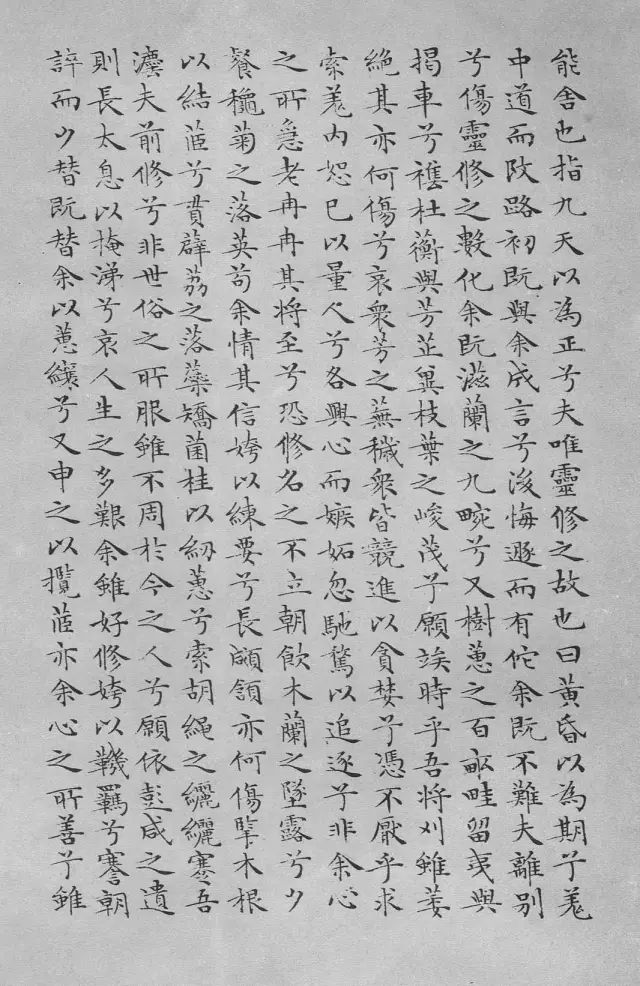 能舍也指九天以為正兮夫唯靈修之故也曰黃昏以為期兮羌
中道而改路初既與余成言兮後悔遯而有佗余既不難夫離別
兮傷靈修之數化余既滋蘭之九畹兮又樹蕙之百畝畦留夷與
揭車兮襍杜蘅與芳芷兾枝葉之峻茂兮願竢時乎吾將刈雖萎
絕其亦何傷兮哀衆芳之蕪穢衆皆競進以貪婪兮憑不厭乎求
索羌內恕己以量人兮各興心而嫉妬忽馳騖以追逐兮非余心
之所急老冉冉其將至兮恐修名之不立朝飲木蘭之墜露兮夕
餐秋菊之落英苟余情其信姱以練要兮長顑頷亦何傷擥木根
以結茝兮貫薜荔之落蘂矯菌桂以紉蕙兮索胡繩之纚纚謇吾
灋夫前修兮非世俗之所服雖不周於今之人兮願依彭咸之遺
則長太息以掩涕兮哀人生之多艱余雖好修姱以鞿羈兮謇朝
誶而夕替既替余以蕙纕兮又申之以攬茝亦余心之所善兮雖